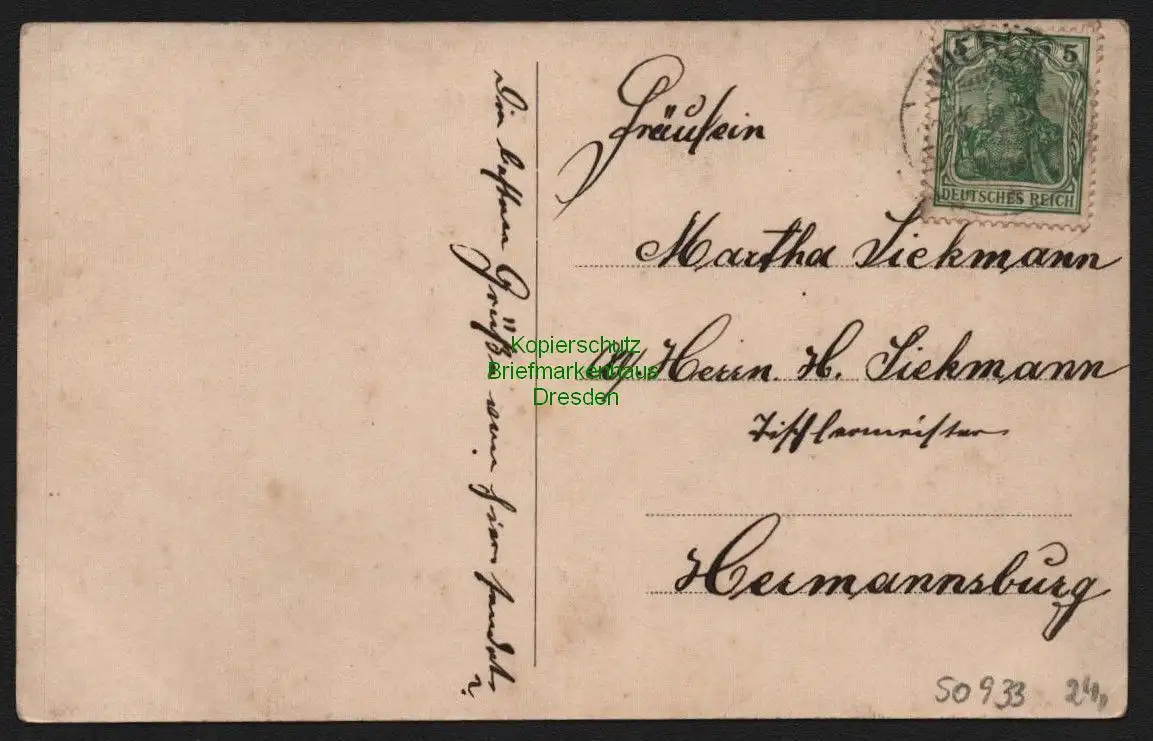 Die besten Grüße von hier sendet
?
Fräulein
Martha Siekmann
Herrn. H. Siekmann
Tischlermeister
Hermannsburg
5 5
DEUTSCHES REICH
Kopierschutz
Briefmarkenhaus
Dresden
50933